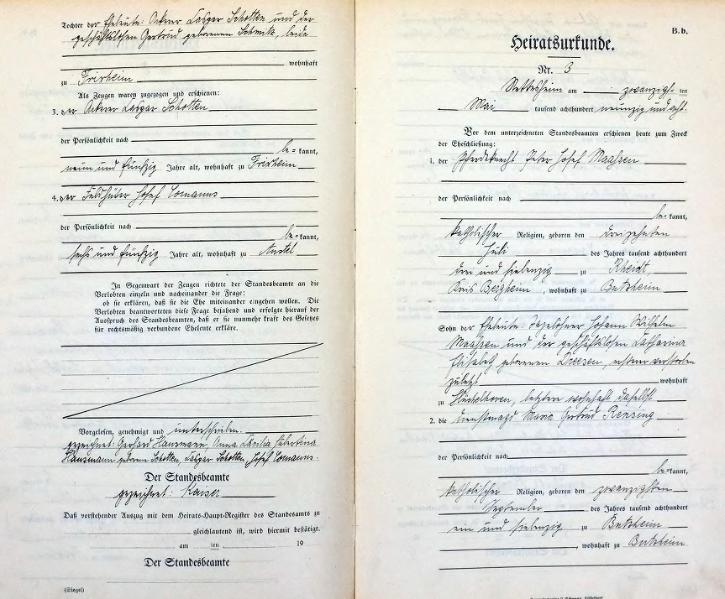 Tochter der Eheleute: Ackerer Caspar Schotten und der
geschäftslosen Gertrud geborenen Schmitz, beide
wohnhaft
zu Frixheim
Als Zeugen waren zugezogen und erschienen:
3. der Ackerer Caspar Schotten
der Persönlichkeit nach
be= kannt,
neun und fünfzig Jahre alt, wohnhaft zu Frixheim
4. der Feldhüter Josef
der Persönlichkeit nach
be= kannt,
sechs und fünfzig Jahre alt, wohnhaft zu Anstel
In Gegenwart der Zeugen richtete der Standesbeamte an die
Verlobten einzeln und nacheinander die Frage:
ob sie erklären, daß sie die Ehe miteinander eingehen wollen. Die
Verlobten beantworteten diese Frage bejahend und erfolgte hierauf der
Ausspruch des Standesbeamten, daß er sie nunmehr kraft des Gesetzes
für rechtmäßig verbundene Eheleute erkläre.
Vorgelesen, genehmigt und unterschrieben.
gezeichnet: Gerhard Hausmann, Anna Cäcilia
Hausmann geborene Schotten, Caspar Schotten, Josef
Der Standesbeamte
gezeichnet: Kaiser
Daß vorstehender Auszug mit dem Heirats-Haupt-Register des Standesamts zu
gleichlautend ist, wird hiermit bestätigt.
am ten 19
Der Standesbeamte
(Siegel)
B.b.
Heiratsurkunde.
Nr. 3
am zwanzigsten ten
Mai tausend achthundert neunzig und acht
Vor dem unterzeichneten Standesbeamten erschienen heute zum Zweck
der Eheschließung:
1. der Pferdeknecht Peter Josef Maaßen
der Persönlichkeit nach
be= kannt,
katholischer Religion, geboren den dreizehnten
Juli des Jahres tausend achthundert
drei und siebenzig zu Rheidt,
Kreis Bergheim, wohnhaft zu Butzheim
Sohn der Eheleute: Tagelöhner Johann Wilhelm
Maaßen und der geschäftslosen Catharina
Elisabeth geborenen Driesen, ersterer verstorben
zuletzt wohnhaft
zu letztere wohnhaft daselbst
2. die Dienstmagd Maria Gertrud Rensing
der Persönlichkeit nach
be= kannt,
katholischer Religion, geboren den zwanzigsten
September des Jahres tausend achthundert
ein und siebenzig zu Butzheim
, wohnhaft zu Butzheim